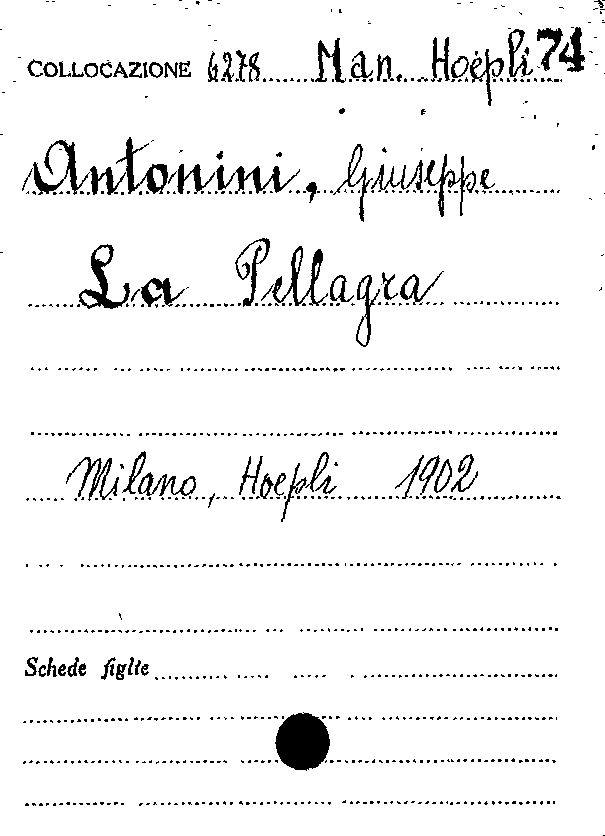 COLLOCAZIONE 6278 Man. Hoepli 74
Antonini, Giuseppe
La Pellagra
Milano, Hoepli 1902
Schede figlie